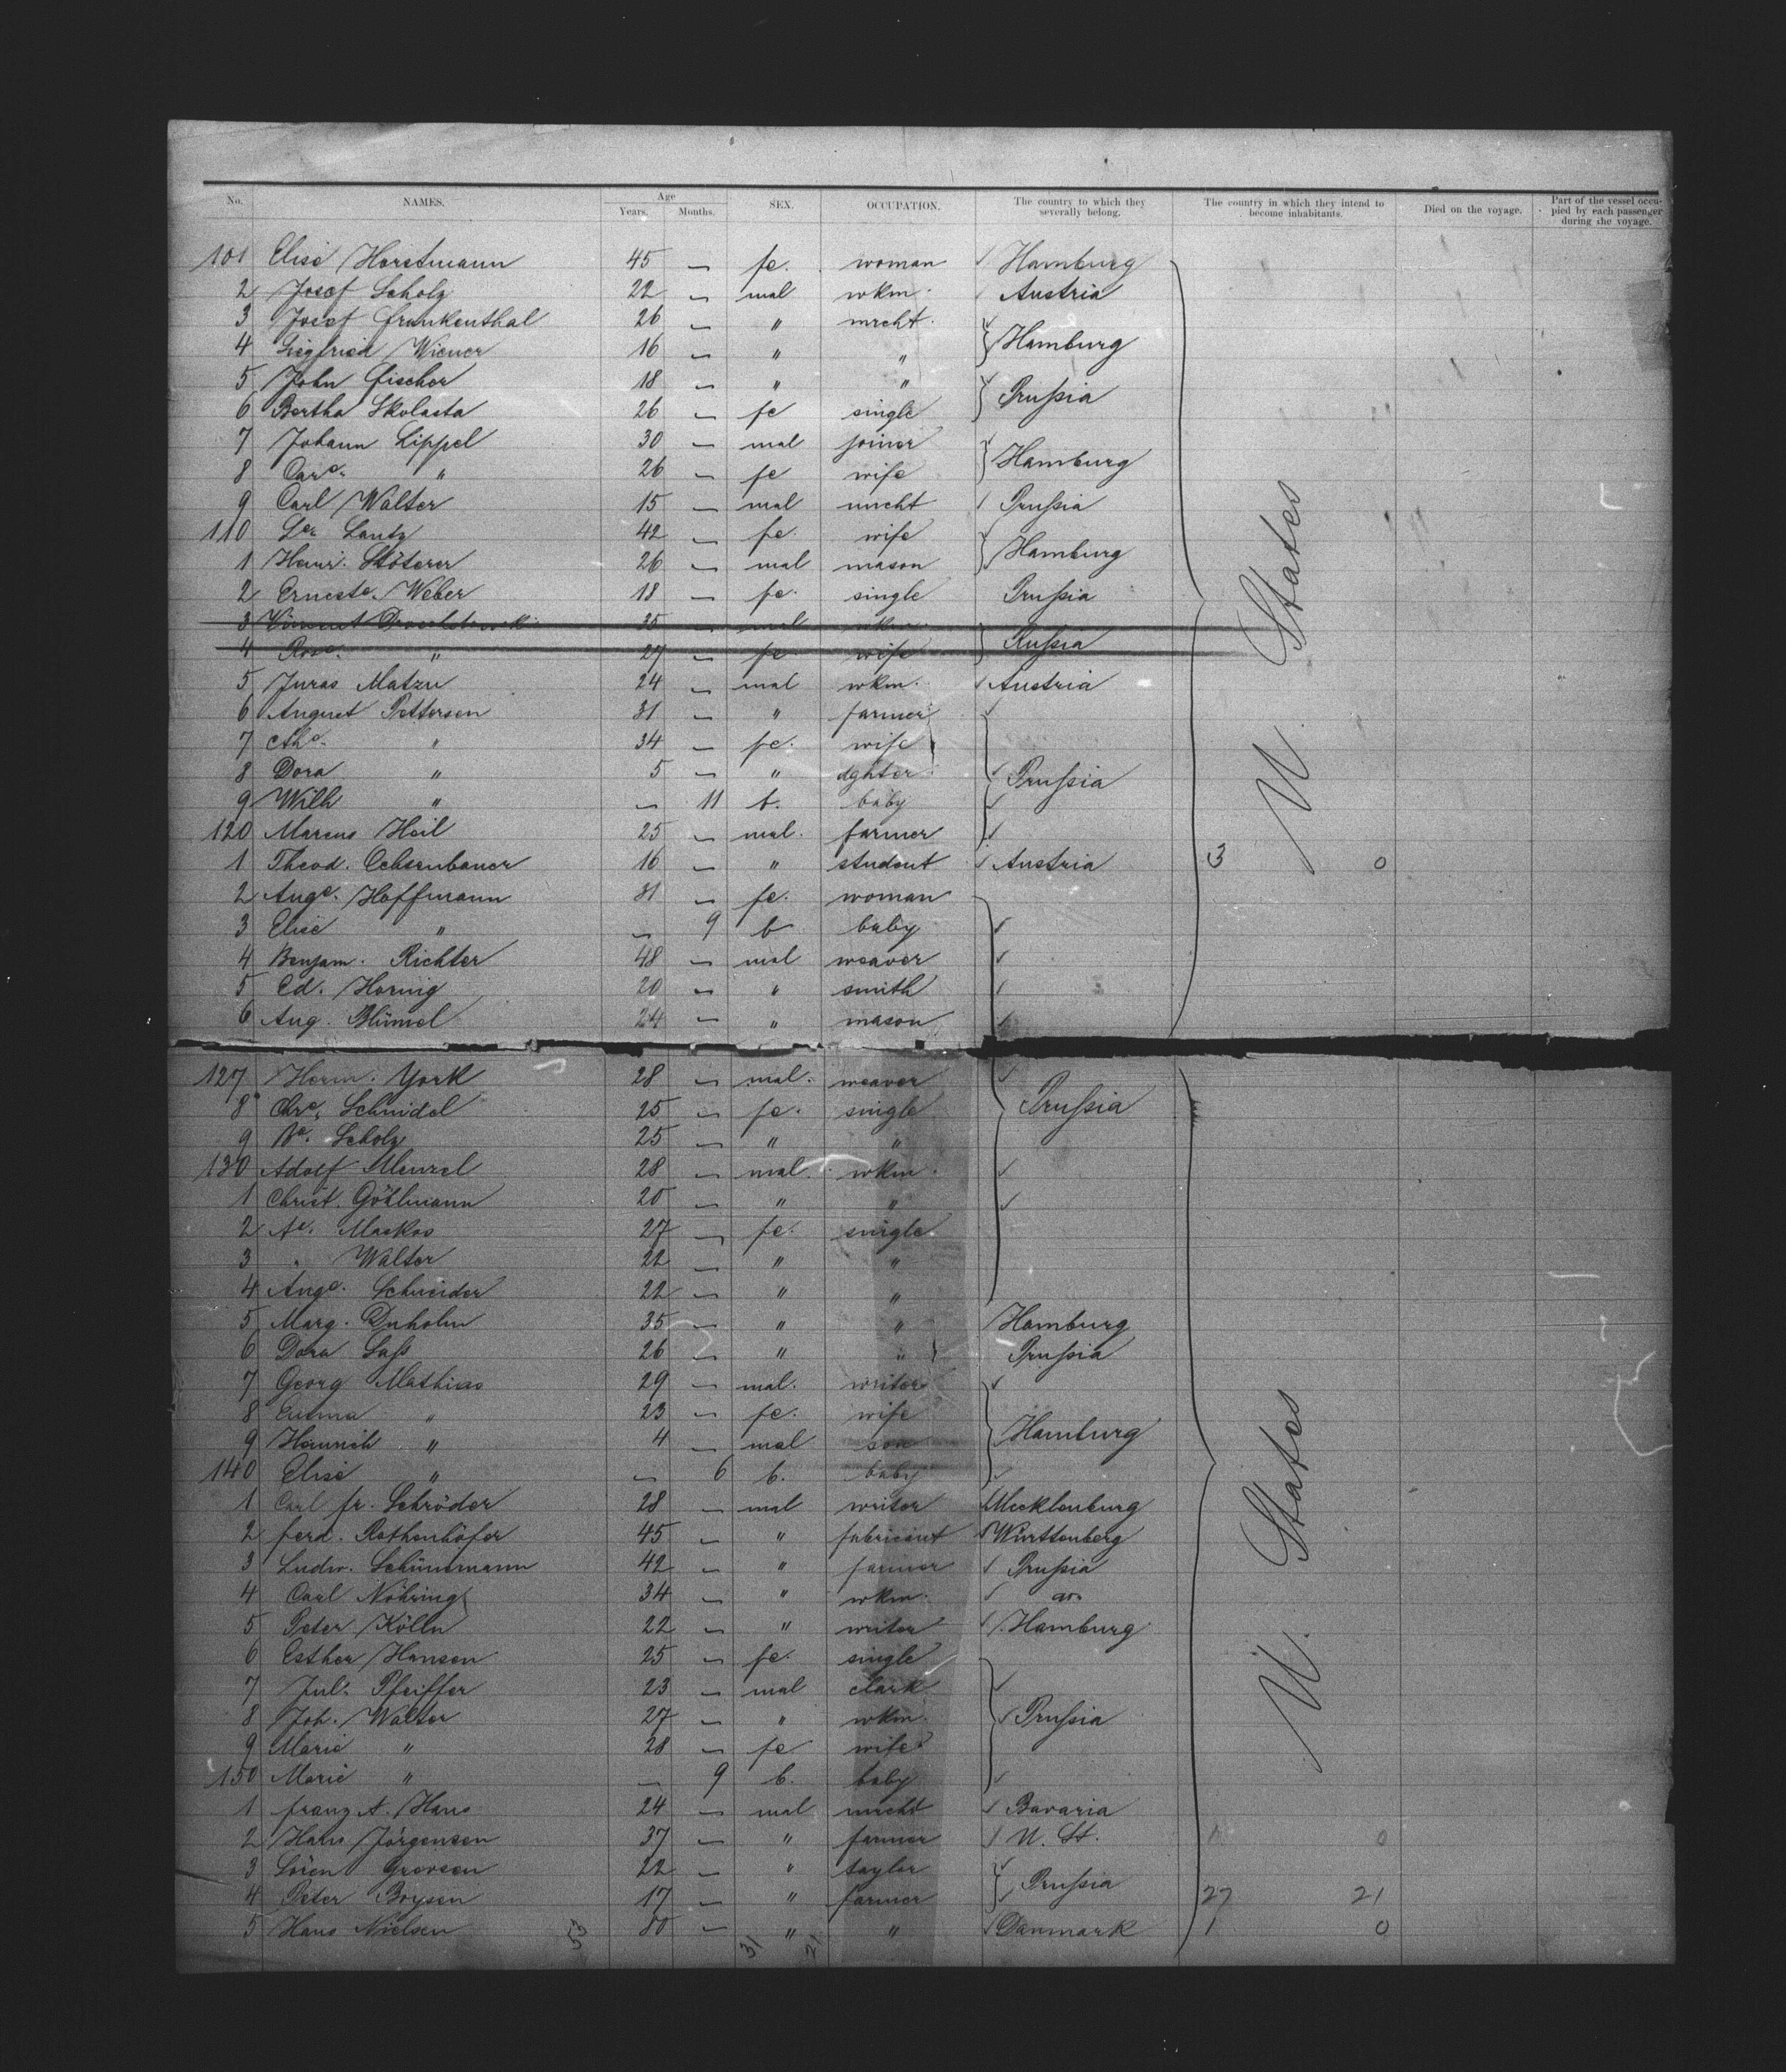 No. NAMES. Age Years. Months. SEX. OCCUPATION. The country to which they severally belong. The country in which they intend to become inhabitants. Died on the voyage. Part of the vessel occupied by each passenger during the voyage.
101 Elise Horstmann 45 — fe. woman Hamburg
2 Josef Scholz 22 — mal wkm. Austria
3 Josef Frankenthal 26 — " mrcht.
4 Siegfried Wiener 16 — " " Hamburg
5 John Fischer 18 — " "
6 Bertha Skolasta 26 — fe single Prussia
7 Johann Lippel 30 — mal joiner
8 Care. " 26 — fe wife Hamburg
9 Carl Walter 15 — mal mrcht Prussia
110 Lantz 42 — fe. wife
1 Heinr. Stöterer 26 — mal mason Hamburg
2 Erneste. Weber 18 — fe. single Prussia
3 Vincent 35 — mal wkm.
4 Rosa. " 27 — fe wife Russia
5 Juras Matzu 24 — mal wkm. Austria
6 August Pettersen 31 — " farmer
7 " 34 — fe. wife
8 Dora " 5 — " dghter Prussia
9 Wilh " — 11 b. baby
120 Marcus Heil 25 — mal. farmer
1 Theod. Ochsenbauer 16 — " student Austria 3 0
2 Auge. Hoffmann 31 — fe. woman
3 Elise " — 9 b baby
4 Benjam. Richter 48 — mal weaver
5 Ed. Hornig 20 — " smith
6 Aug. Blümel 24 — " mason
U. States
127 Herm. York 28 — mal. weaver
8 Chre. Schmidel 25 — fe. single Prussia
9 Be. Scholz 25 — " "
130 Adolf Menzel 28 — mal. wkm.
1 Christ. Göhlmann 20 — " "
2 Ae. Maskos 27 — fe. single
3 " Walter 22 — " "
4 Auge. Schneider 22 — " "
5 Marg. Duholm 35 — " " Hamburg
6 Dora Sass 26 — " " Prussia
7 Georg Mathias 29 — mal. writer
8 Emma " 23 — fe. wife
9 Heinrich " 4 — mal son Hamburg
140 Elise " — 6 b. baby
1 Carl fr. Schröder 28 — mal writer Mecklenburg
2 ferd. Rothenhöfer 45 — " fabricant Württenberg
3 Ludw. Schünemann 42 — " farmer Prussia
4 Carl Nöhring 34 — " wkm.
5 Peter Kölln 22 — " writer Hamburg
6 Esther Hansen 25 — fe. single
7 Jul. Pfeiffer 23 — mal clark
8 Joh. Walter 27 — " wkm. Prussia
9 Marie " 28 — fe wife
150 Marie " — 9 b. baby
1 franz A. Hans 24 — mal mrcht Bavaria
2 Hans Jörgensen 37 — " farmer U. St. 1 0
3 Sören Grevsen 22 — " taylor
4 Peter Boysen 17 — " farmer Prussia 27 21
5 Hans Nielsen 53 80 — 31 " 21 " Danmark 1 0
U. States